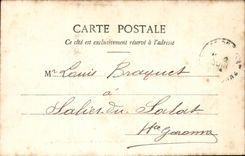 CARTE POSTALE
Ce côté est exclusivement réservé à l'adresse
Mr. Louis Braquet
à
Salies-du-Salat
Hte Garonne